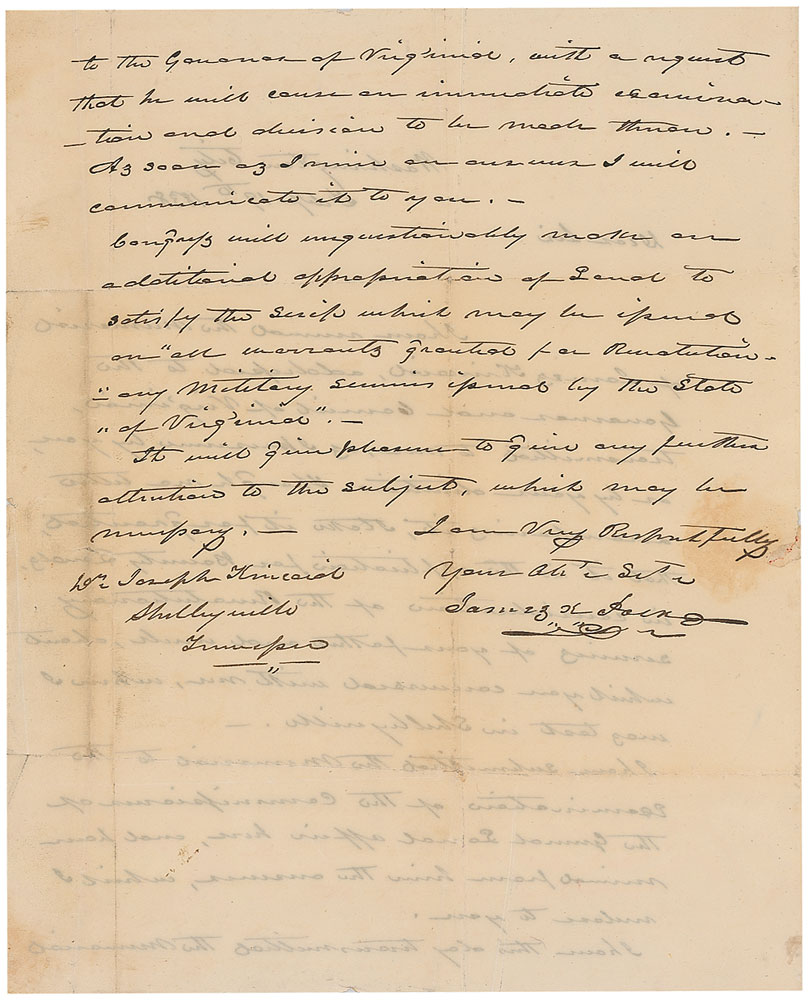 to the Governor of Virginia, with a request
that he will cause an immediate examina-
-tion and division to be made thereon. -
As soon as I receive an answer I will
communicate it to you. -
Congress will unquestionably make an
additional appropriation of Land to
satisfy the Scrip which may be issued
on "all warrants granted for Revolution-
"-ary Military services issued by the State
"of Virginia". -
It will give pleasure to give any further
attention to the subject, which may be
necessary. -
I am Very Respectfully
Your Obt Svt
James K Polk
Dr Joseph Kincaid
Shelbyville
Tennessee